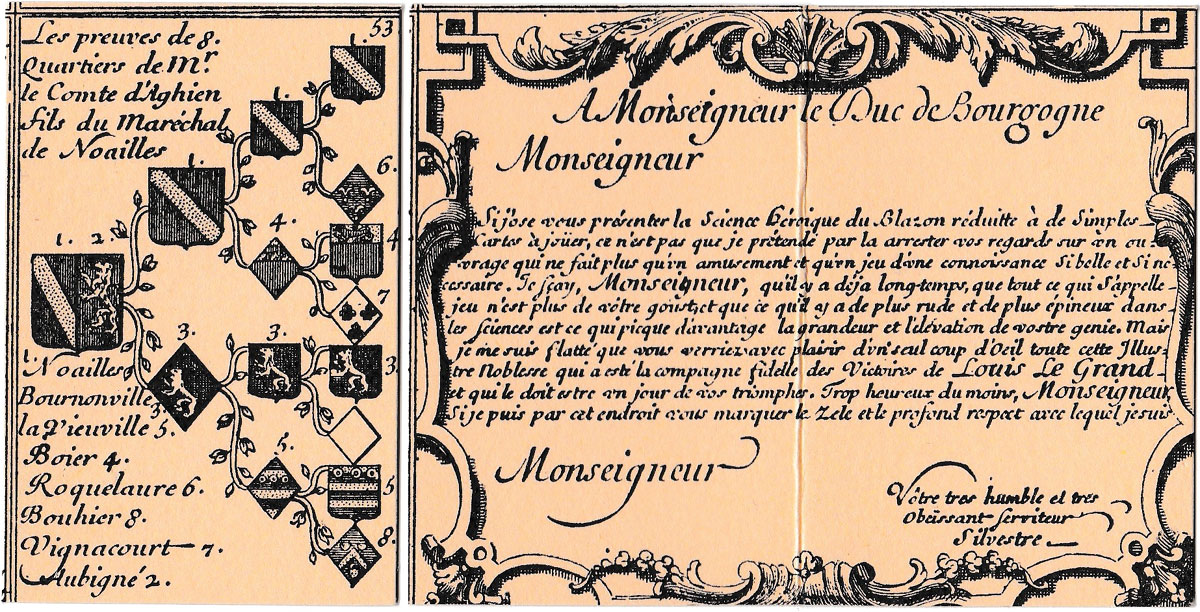 53
Les preuves de 8.
Quartiers de Mr
le Comte d'Aghien
fils du Maréchal
de Noailles
1.
1.
1.
6.
4.
4
7
1. 2.
3.
3.
3.
5.
5
8.
1. Noailles
Bournonville 3.
la Vieuville 5.
Boier 4.
Roquelaure 6.
Bouhier 8.
Vignacourt 7.
Aubigné 2.
A Monseigneur le Duc de Bourgogne
Monseigneur
Si j'ose vous présenter la Science Héroique du Blazon réduitte à de Simples
Cartes à joüer, ce n'est pas que je prétende par la arrester vos regards sur vn ou-
vrage qui ne fait plus qu'vn amusement et qu'vn jeu d'vne connoissance Si belle et Si né
cessaire. Je sçay, Monseigneur, qu'il y a déja long-temps, que tout ce qui S'appelle
jeu n'est plus de vôtre goust, et que ce qu'il y a de plus rude et de plus épineux dans
les Sciences est ce qui picque davantage la grandeur et l'élévation de vostre genie. Mais
je me suis flatté que vous verriez avec plaisir d'vn seul coup d'Oeil toute cette Illus-
tre Noblesse qui a esté la compagne fidelle des Victoires de Louis Le Grand
et qui le doit estre vn jour de vos triomphes. Trop heureux du moins, Monseigneur,
Si je puis par cet endroit vous marquer le Zele et le profond respect avec lequel je suis
Monseigneur
Vôtre tres humble et tres
Obeïssant Serviteur
Silvestre